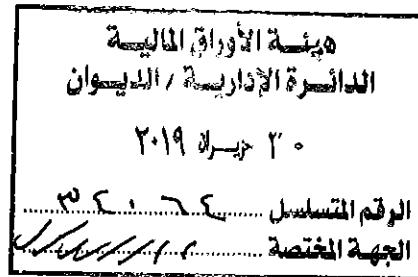 هيئة الأوراق المالية
الدائرة الإدارية / الديوان
٣٠ حزيران ٢٠١٩
الرقم المتسلسل ٣٤٠٦٤
الجهة المختصة